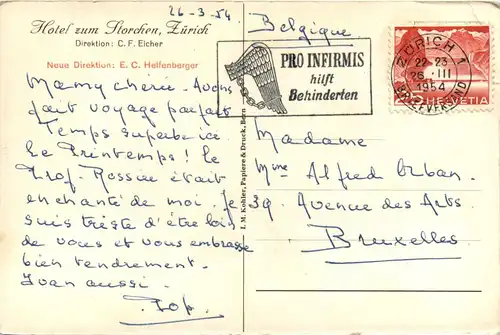 26-3-54
Hotel zum Storchen, Zürich
Direktion: C. F. Eicher
Neue Direktion: E. C. Helfenberger
Mamy chérie - Avons
fait voyage parfait
Temps superbe
Le Printemps! le
Prof. Rossier était
enchanté de moi. Je
suis triste d'être loin
de vous et vous embrasse
bien tendrement.
Ivan aussi.
Pop.
I. M. Kohler, Papiere & Druck, Bern
Belgique
PRO INFIRMIS
hilft
Behinderten
ZÜRICH 1
22-23
26. III
1954
BRIEFVERSAND
HELVETIA
Madame
Mme Alfred Orban.
39 Avenue des Arts
Bruxelles